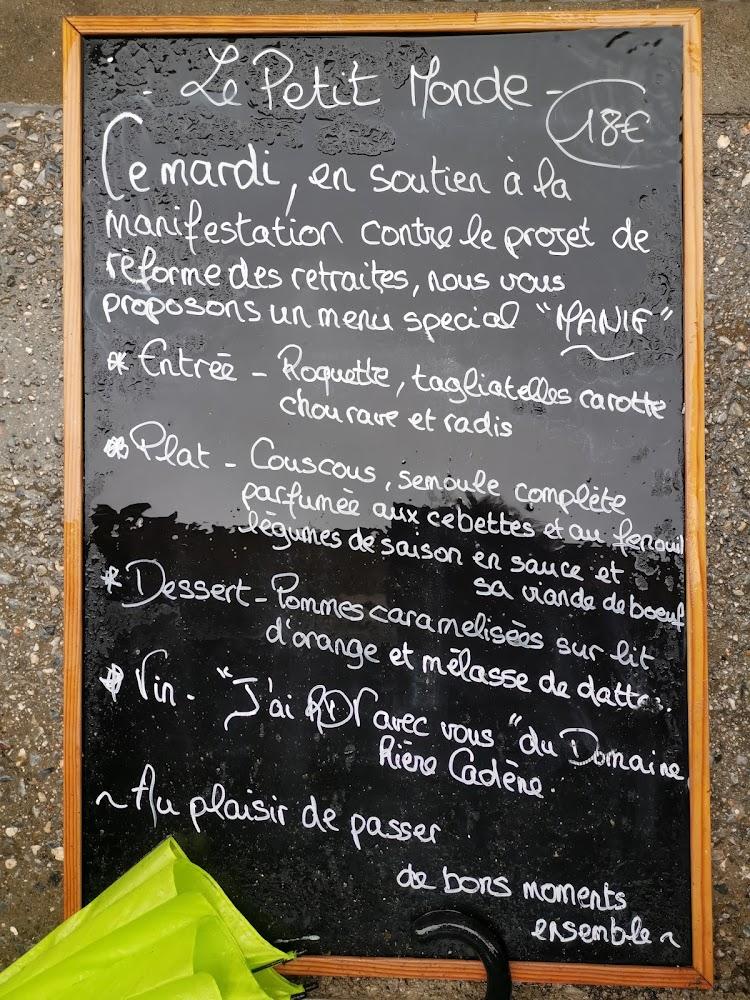 - Le Petit Monde -
18€
Ce mardi, en soutien à la
manifestation contre le projet de
réforme des retraites, nous vous
proposons un menu special "MANIF"
* Entrée - Roquette, tagliatelles carotte
chou rave et radis
* Plat - Couscous, semoule complète
parfumée aux cebettes et au fenouil
légumes de saison en sauce et
sa viande de boeuf
* Dessert - Pommes caramelisées sur lit
d'orange et mélasse de dattes.
* Vin - "J'ai RDV avec vous" du Domaine
Rière Cadène.
~ Au plaisir de passer
de bons moments
ensemble ~